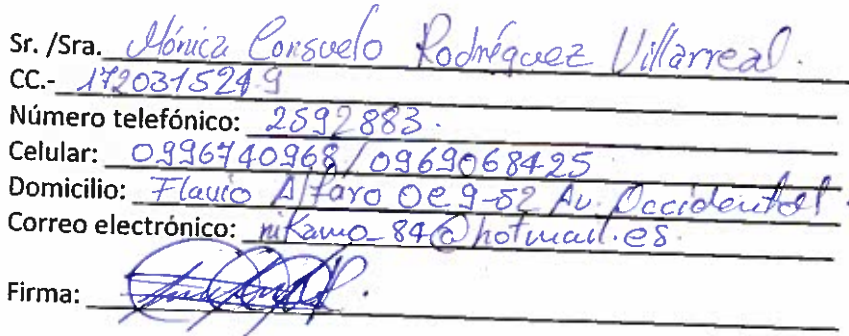 Sr. /Sra. Mónica Consuelo Rodríguez Villarreal.
CC.- 1720315249
Número telefónico: 2592883.
Celular: 0996740968/0969068425
Domicilio: Flavio Alfaro Oe 9-52 Av. Occidental.
Correo electrónico: nikamo_84@hotmail.es.
Firma: